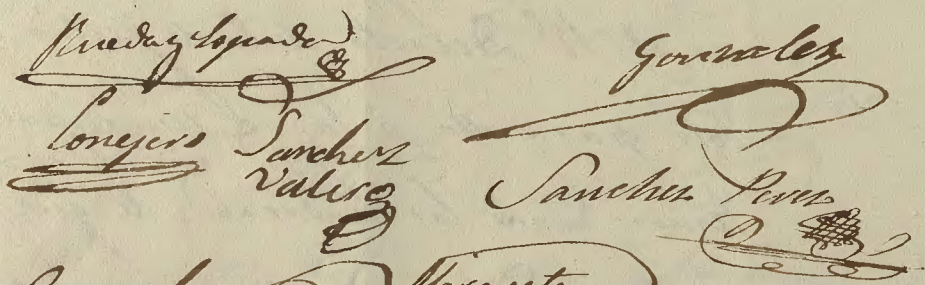 Rueda y Lozada
Gonzalez
Conejero
Sanchez
Valero
Sanchez Perez